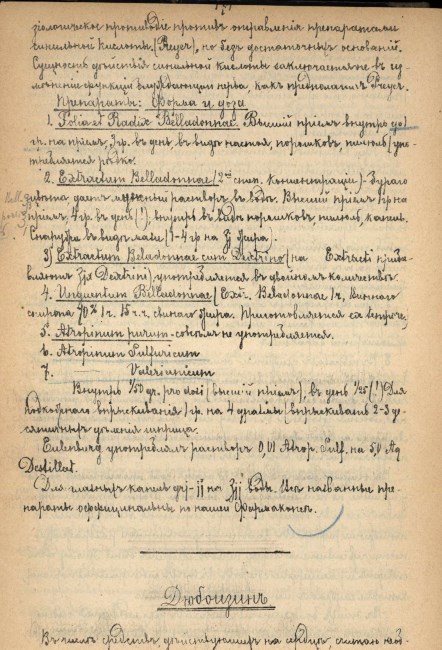 зіологическое противодіе противъ отравленія препаратами
синильной кислоты (Preyer), но безъ достаточныхъ основаній.
Сущность дѣйствія синильной кислоты заключается не въ
функціи блуждающаго нерва, какъ предполагалъ Preyer.
Препараты: Форма и доза
1. Folia et Radix Belladonnae. Высшій пріемъ внутрь до 1
гр. на пріемъ, 3 гр. въ день въ видѣ настоя, порошковъ, пилюль (упо-
требляется рѣдко.
2. Extractum Belladonnae (2ой степ. консистенціи). Бураго
цвѣта даетъ мутный растворъ въ водѣ. Высшій пріемъ гр на
пріемъ, 4 гр. въ день (!), внутрь въ видѣ порошковъ пилюль, капель.
Снаружи въ видѣ мази (1-4 гр на ʒj жира).
3) Extractum Beladonnae cum Dextrino (на Extracti приба-
вляютъ ʒjj Dextrini) употребляется въ двойномъ количествѣ.
4. Unguentum Belladonnae (Extr. Beladonnae 1 ч., Винного
спирта 70% 1 ч. 18 ч. свинаго жира. Приготовляется ex tempore)
5. Atropinum purum - совсѣмъ не употребляется.
6. Atropinum Sulfuricum
7. —— Valerianicum
Внутрь 1/50 gr. pro dosi (высшій пріемъ), въ день 1/25 (!) Для
подкожнаго впрыскиванія 1 гр. на 4 драхмы (впрыскивать 2-3 де-
сятыхъ дѣленія шприца.
Eulenburg употреблялъ растворъ 0,01 Atrop. Sulf. на 5,0 Aq
Destillat.
Для глазныхъ капель grj-jj на ʒjj воды. Всѣ названные пре-
параты оффицинальны по нашей Фармакопеѣ.
Дюбоизинъ
Въ числѣ средствъ, дѣйствующихъ на сердце, считаю